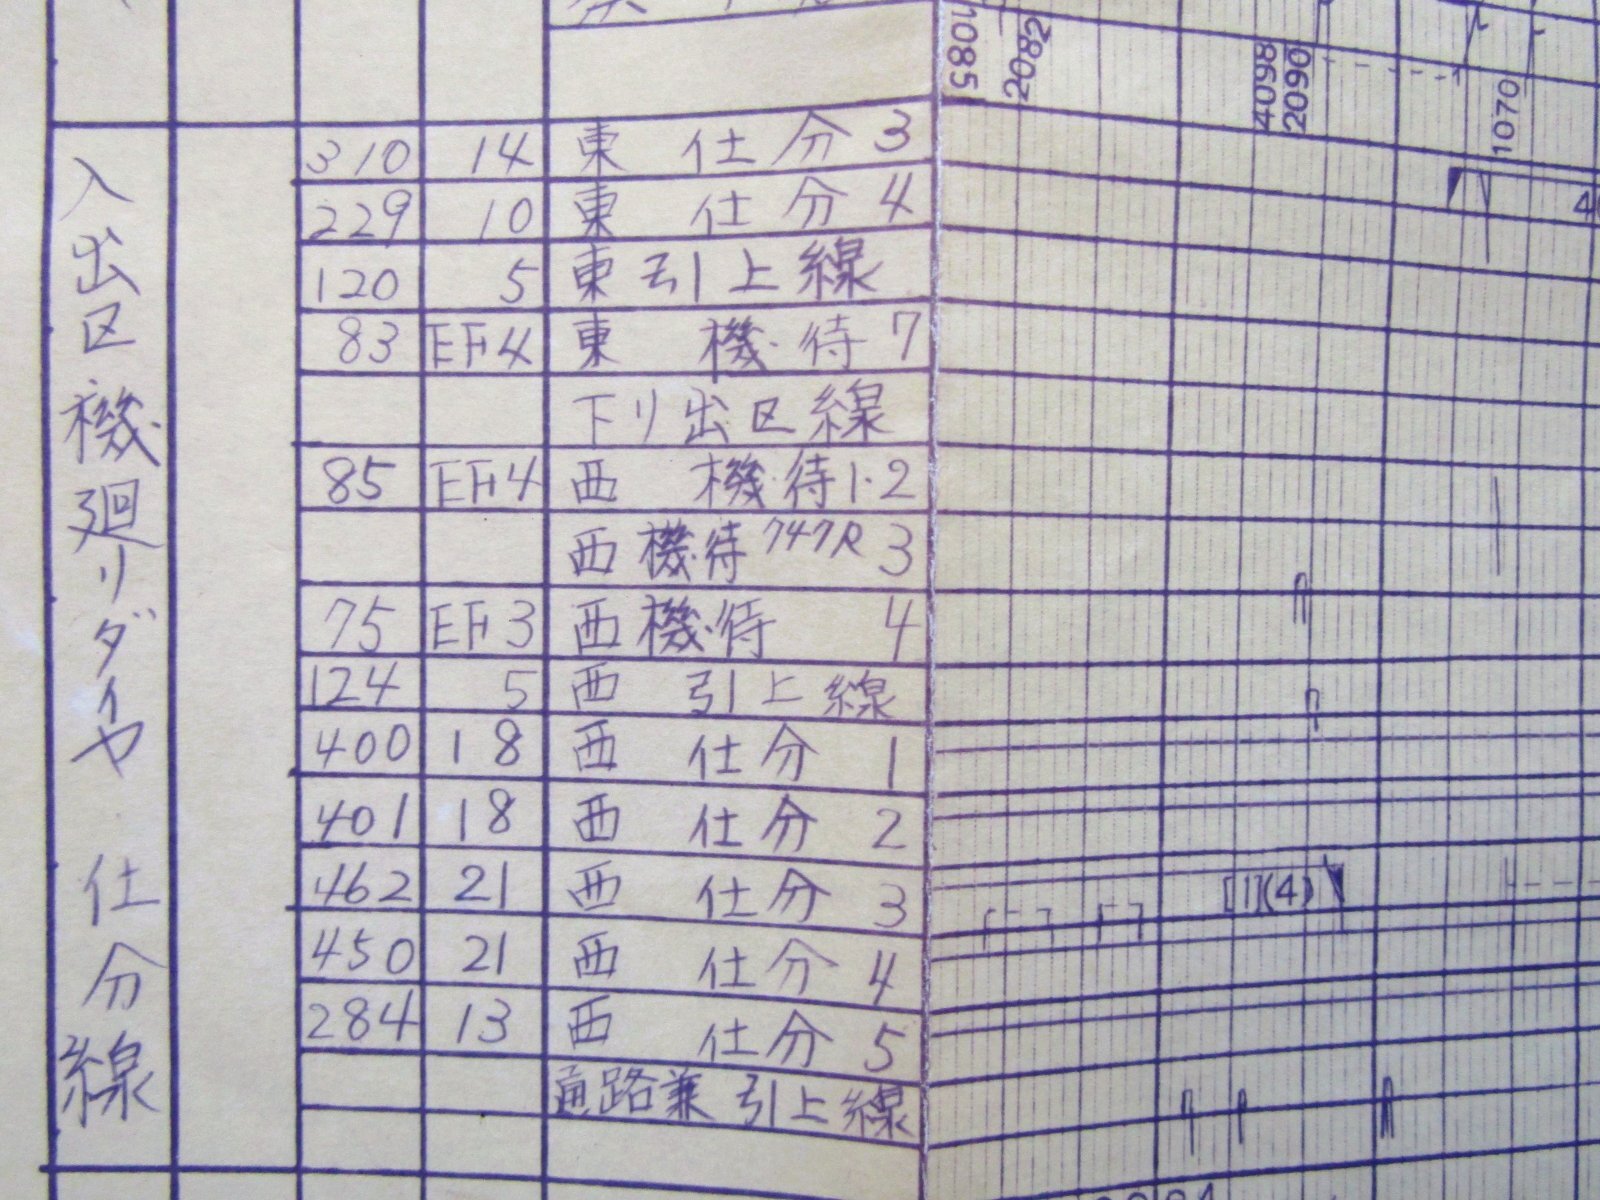 入出区機廻りダイヤ 仕分線
310 14 東 仕分 3
229 10 東 仕分 4
120 5 東引上線
83 EF4 東 機待 7
下り出区線
85 EF4 西 機待 1・2
西機待 3
75 EF3 西機待 4
124 5 西 引上線
400 18 西 仕分 1
401 18 西 仕分 2
462 21 西 仕分 3
450 21 西 仕分 4
284 13 西 仕分 5
通路兼引上線
1085
2082
4098
2090
1070
[1](4)